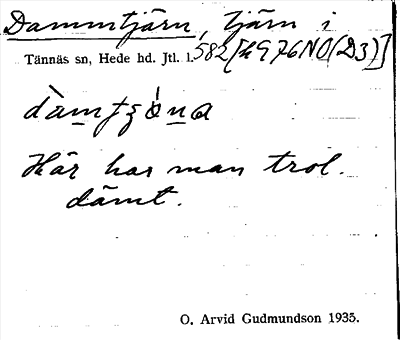 Dammtjärn, tjärn i
Tännäs sn, Hede hd. Jtl. l. 582 [h976NO(D3)]
Här har man trol.
dämt.
O. Arvid Gudmundson 1935.